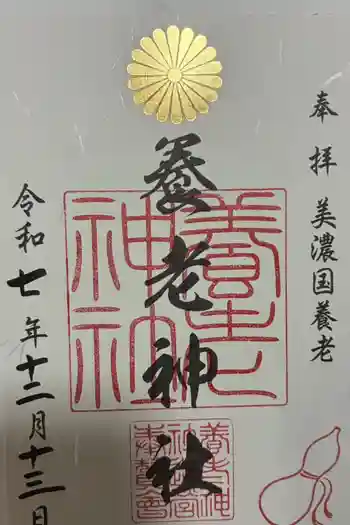 奉拝 美濃国養老
養老神社
養老神社
養老神社宮奉賛會
令和七年十二月十三日